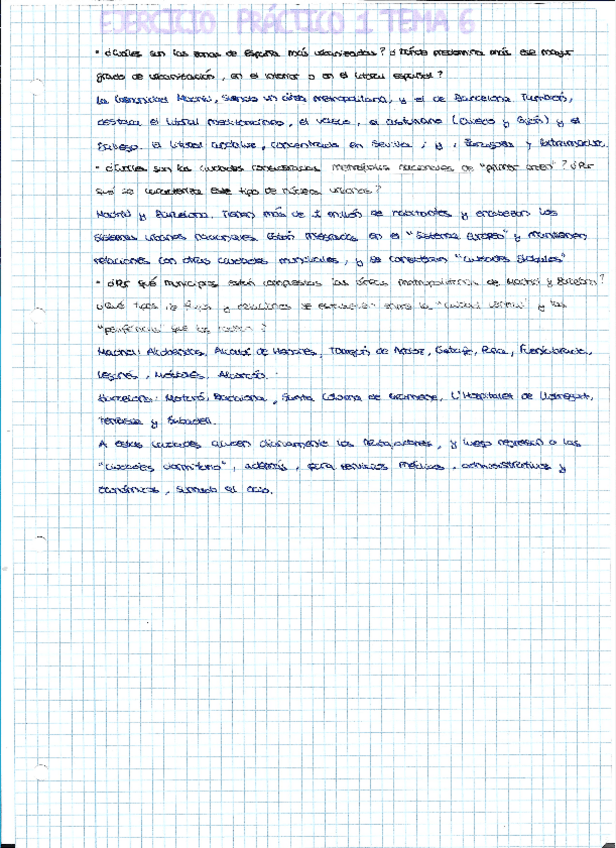 EJERCICIO PRÁCTICO 1 TEMA 6
• ¿Cuáles son las zonas de España más urbanizadas? ¿Dónde predomina más ese mayor
grado de urbanización, en el interior o en el litoral español?
La Comunidad Madrid, siendo un área metropolitana, y el de Barcelona. También,
destaca el litoral mediterráneo, el vasco, el asturiano (Oviedo y Gijón) y el
gallego. El litoral andaluz, concentrado en Sevilla, y, Zaragoza y Extremadura.
• ¿Cuáles son las ciudades consideradas metrópolis nacionales de "primer orden"? ¿Por
qué se caracteriza este tipo de núcleos urbanos?
Madrid y Barcelona. Tienen más de 1 millón de habitantes y encabezan los
sistemas urbanos nacionales. Están integradas en el "Sistema Europeo" y mantienen
relaciones con otras ciudades mundiales, y se consideran "ciudades globales"
• ¿Por qué municipios están compuestas las áreas metropolitanas de Madrid y Barcelona?
¿Qué tipos de flujos y relaciones se establecen entre la "ciudad central" y las
"periferias" que las rodean?
Madrid: Alcobendas, Alcalá de Henares, Torrejón de Ardoz, Getafe, Parla, Fuenlabrada,
Leganés, Móstoles, Alcorcón.
Barcelona: Mataró, Badalona, Santa Coloma de Gramenet, L'Hospitalet de Llobregat,
Terrassa y Sabadell.
A estas ciudades acuden diariamente los trabajadores, y luego regresan a las
"ciudades dormitorio", además, para servicios médicos, administrativos y
económicos, sumado al ocio.